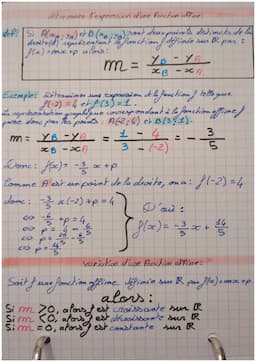 déterminer l'expression d'une fonction affine:
Si A(xA ; yA) et B(xB ; yB) sont deux points distincts de la
droite (d) représentant la fonction f définie sur ℝ par :
f(x) = mx + p alors :
m = (yB - yA) / (xB - xA)
Exemple: Déterminer une expression de la fonction f telle que
f(-2) = 4 et f(3) = 1.
La représentation graphique correspondant à la fonction affine f
passe donc par les points : A(-2;4) et B(3;1).
m = (yB - yA) / (xB - xA) = (1 - 4) / (3 - (-2)) = - 3/5
Donc: f(x) = -3/5 x + p
Comme A est un point de la droite, on a : f(-2) = 4
donc: -3/5 x (-2) + p = 4
⇔ 6/5 + p = 4
⇔ p = 4 - 6/5
⇔ p = 20/5 - 6/5
⇔ p = 14/5
D'où :
f(x) = -3/5 x + 14/5
Variation d'une fonction affine:
Soit f une fonction affine définie sur ℝ par f(x) = mx + p
alors:
Si m > 0, alors f est croissante sur ℝ
Si m < 0, alors f est décroissante sur ℝ
Si m = 0, alors f est constante sur ℝ